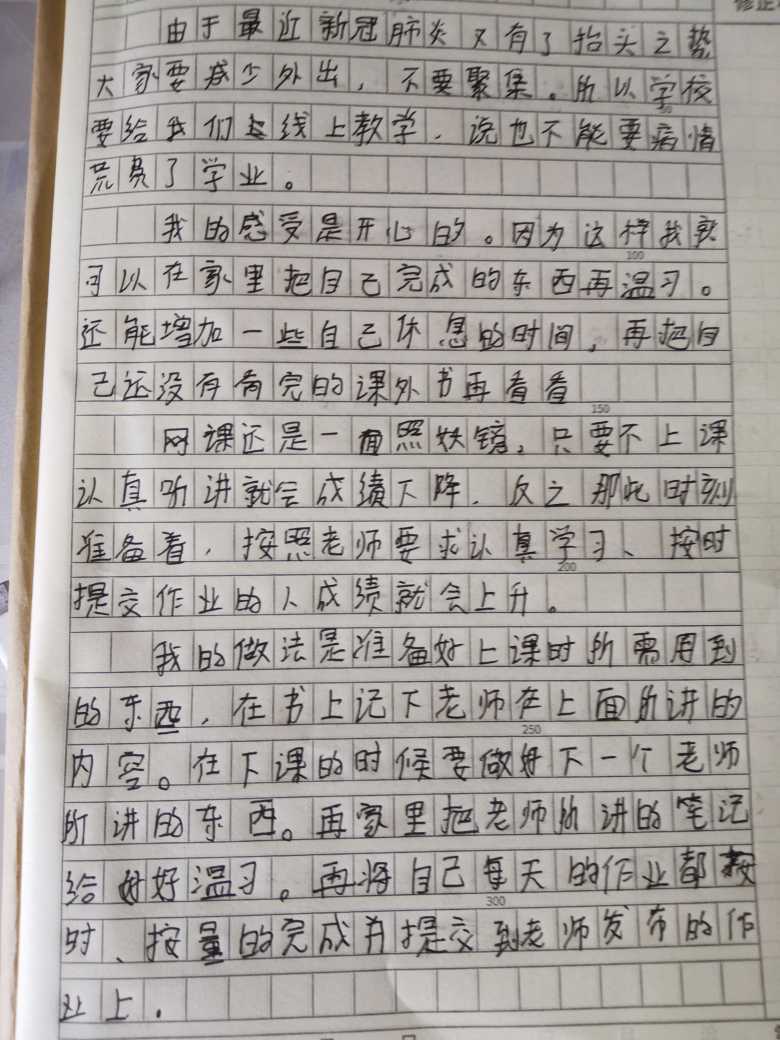 由于最近新冠肺炎又有了抬头之势
大家要减少外出，不要聚集。所以学校
要给我们线上教学，说也不能要病情
荒费了学业。
我的感受是开心的。因为这样我就
可以在家里把自己完成的东西再温习。
还能增加一些自己休息的时间，再把自
己还没有看完的课外书再看看
网课还是一面照妖镜，只要不上课
认真听讲就会成绩下降，反之那些时刻
准备着，按照老师要求认真学习、按时
提交作业的人成绩就会上升。
我的做法是准备好上课时所需用到
的东西，在书上记下老师在上面所讲的
内容。在下课的时候要做好下一个老师
所讲的东西。再家里把老师所讲的笔记
给好好温习。再将自己每天的作业都按
时、按量的完成并提交到老师发布的作
业上。
100
150
200
250
300